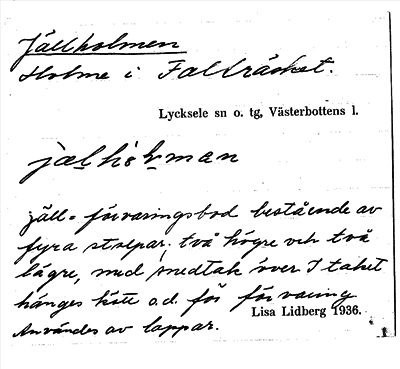 Jällholmen
Holme i Fallräsket.
Lycksele sn o. tg, Västerbottens l.
jäll = förvaringsbod bestående av
fyra stolpar. två högre och två
lägre, med snedtak över I taket
hänges kött o.d. för förvaring
Lisa Lidberg 1936.
Användes av lappar.